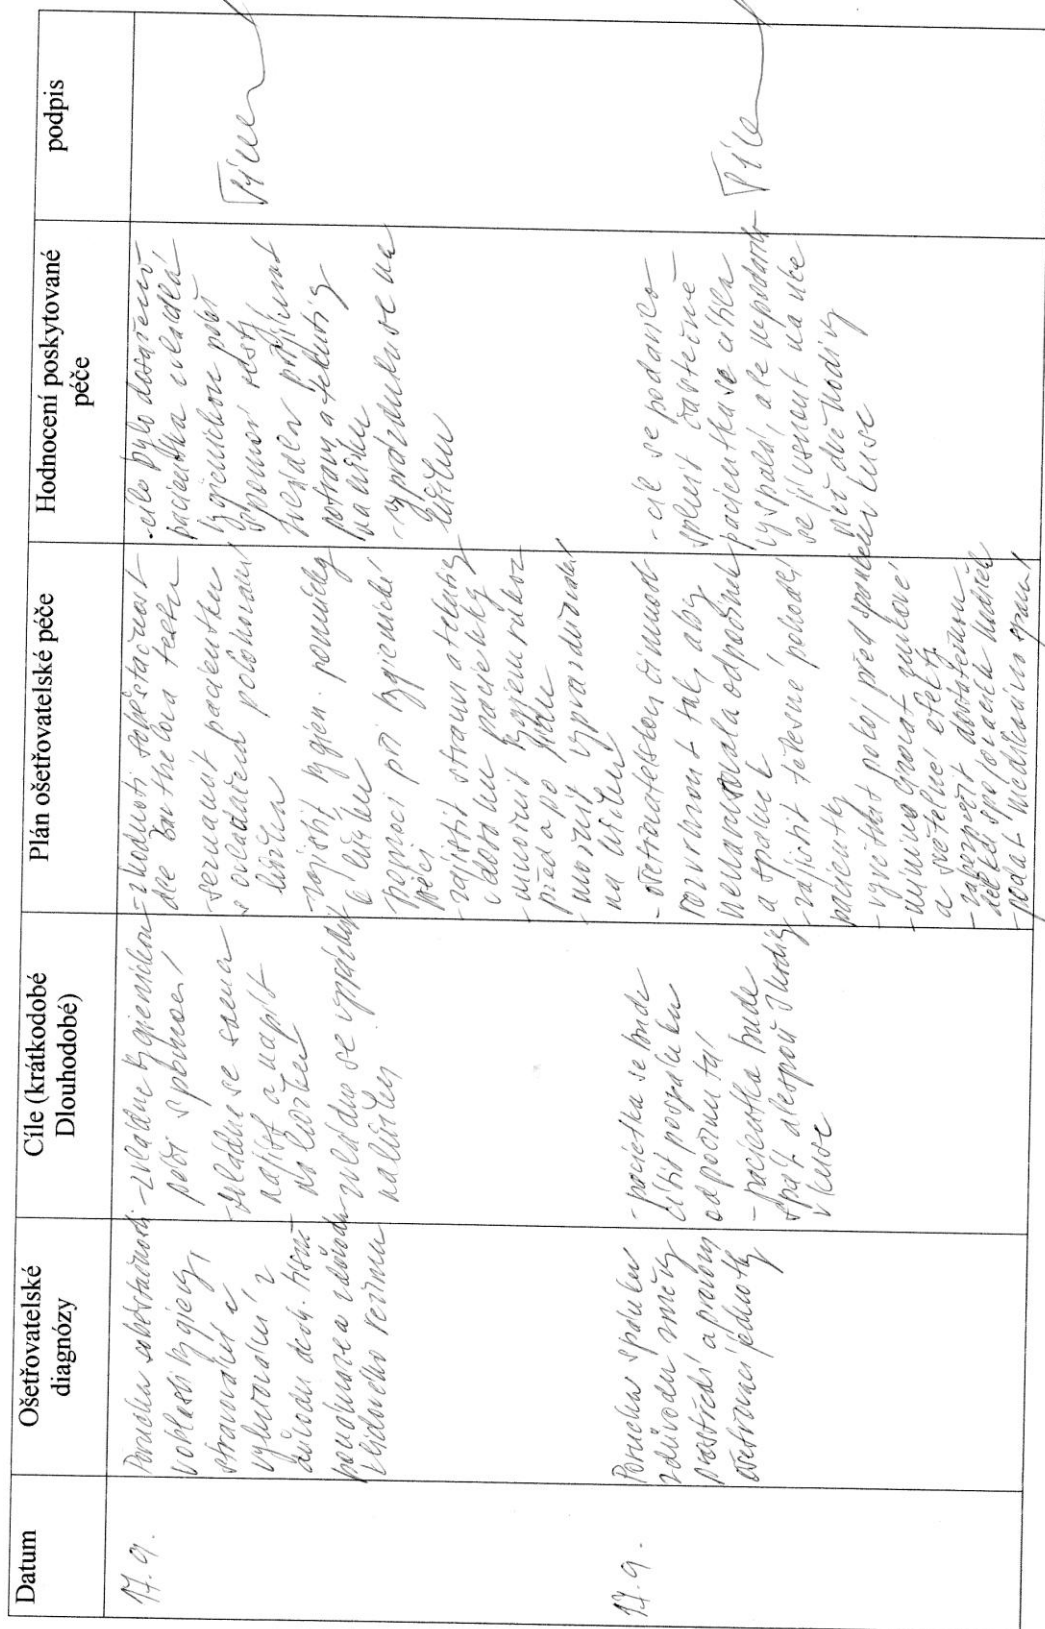 Datum
Ošetřovatelské
diagnózy
Cíle (krátkodobé
Dlouhodobé)
Plán ošetřovatelské péče
Hodnocení poskytované
péče
podpis
17.9.
Porucha soběstačnosti
v oblasti hygieny,
stravování a
vylučování z
důvodu
a důvodu
klidového režimu
- zvládne hygienickou
péči s pomocí
- zvládne se sama
najíst a napít
na lůžku
- zvládne se
na lůžku
- zhodnotit soběstačnost
dle Barthelova testu
- seznámit pacientku
s ovládáním polohování
lůžka
- zajistit hygien. pomůcky
k lůžku
- pomoci při hygienické
péči
- zajistit stravu a tekutiny
v dosahu pacientky
- umožnit hygienu rukou
před a po jídle
- umožnit vyprazdňování
na lůžku
- cíle bylo dosaženo
pacientka zvládla
hygienickou péči
s pomocí sestry
přijímat
potravu a tekutiny
na lůžku
na
lůžku
17.9.
Porucha spánku
z důvodu změny
prostředí a
ošetřovací jednotky
- pacietka se bude
cítit po spánku
odpočinutá
- pacientka bude
spát alespoň 3 hodiny
v kuse
- ošetřovatelskou činnost
rozvrhnout tak, aby
nenarušovala odpočinek
a spánek
- zajistit tělesné pohodlí
pacientky
- vyvětrat pokoj před spaním
- minimalizovat zvukové
a světelné efekty
- zabezpečit dostatečnou
- podat medikaci
- cíl se podařilo
splnit částečně
pacientka se cítila
vyspalá, ale nepodařilo
se jí usnout na více
než dvě hodiny
v kuse